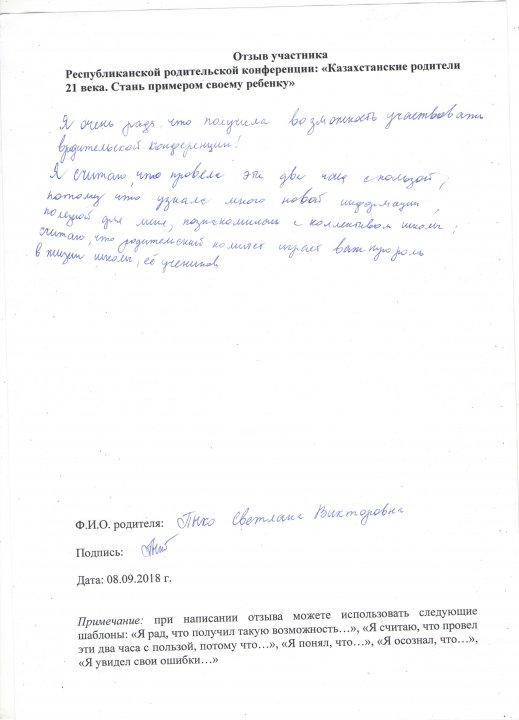 Отзыв участника
Республиканской родительской конференции: «Казахстанские родители
21 века. Стань примером своему ребенку»
Я очень рада что получила возможность участвовать
в родительской конференции!
Я считаю, что провела эти два часа с пользой,
потому что узнала много новой информации,
полезной для меня, познакомилась с коллективом школы,
считаю, что родительский комитет играет важную роль
в жизни школы, её учеников.
Ф.И.О. родителя: Светлана Викторовна
Подпись:
Дата: 08.09.2018 г.
Примечание: при написании отзыва можете использовать следующие
шаблоны: «Я рад, что получил такую возможность…», «Я считаю, что провел
эти два часа с пользой, потому что…», «Я понял, что…», «Я осознал, что…»,
«Я увидел свои ошибки…»